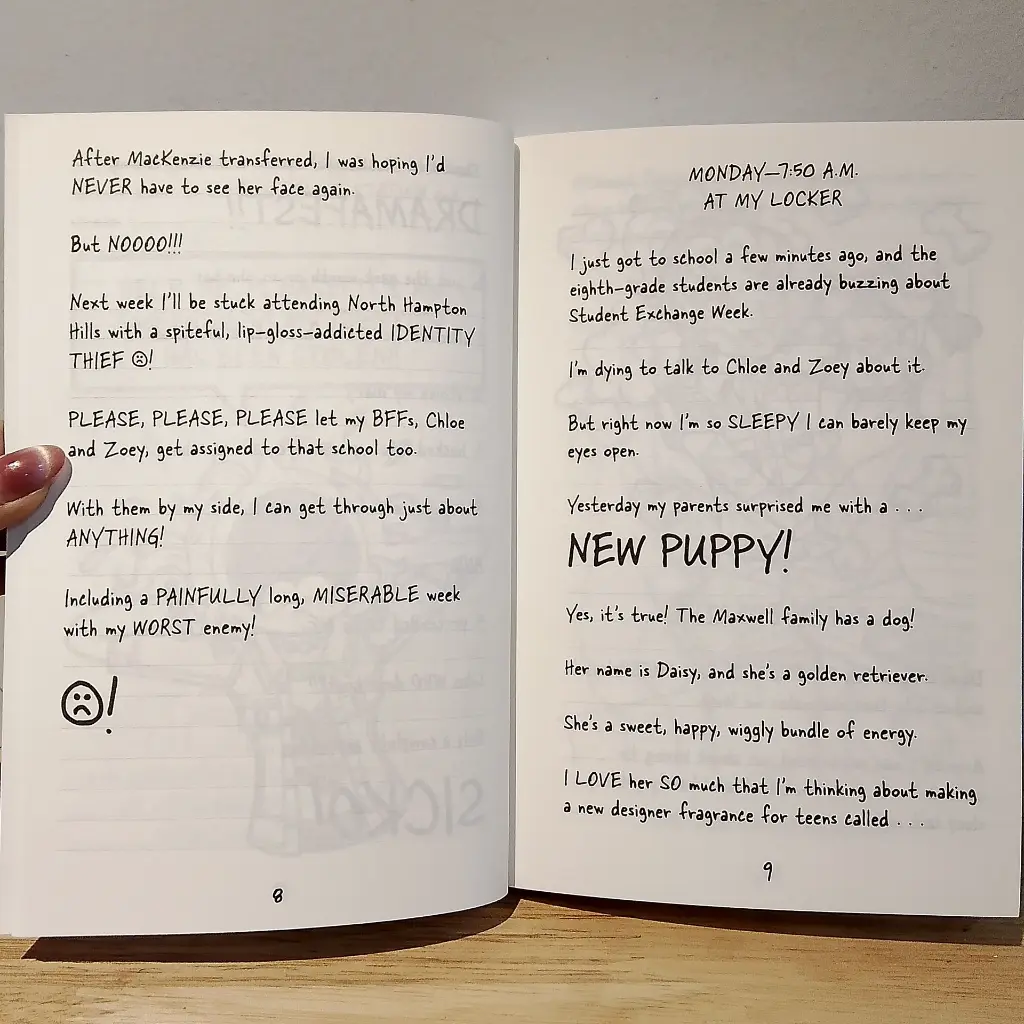 After MacKenzie transferred, I was hoping I'd
NEVER have to see her face again.
But NOOOO!!!
Next week I'll be stuck attending North Hampton
Hills with a spiteful, lip-gloss-addicted IDENTITY
THIEF ☹!
PLEASE, PLEASE, PLEASE let my BFFs, Chloe
and Zoey, get assigned to that school too.
With them by my side, I can get through just about
ANYTHING!
Including a PAINFULLY long, MISERABLE week
with my WORST enemy!
☹!
8
MONDAY—7:50 A.M.
AT MY LOCKER
I just got to school a few minutes ago, and the
eighth-grade students are already buzzing about
Student Exchange Week.
I'm dying to talk to Chloe and Zoey about it.
But right now I'm so SLEEPY I can barely keep my
eyes open.
Yesterday my parents surprised me with a . . .
NEW PUPPY!
Yes, it's true! The Maxwell family has a dog!
Her name is Daisy, and she's a golden retriever.
She's a sweet, happy, wiggly bundle of energy.
I LOVE her SO much that I'm thinking about making
a new designer fragrance for teens called . . .
9